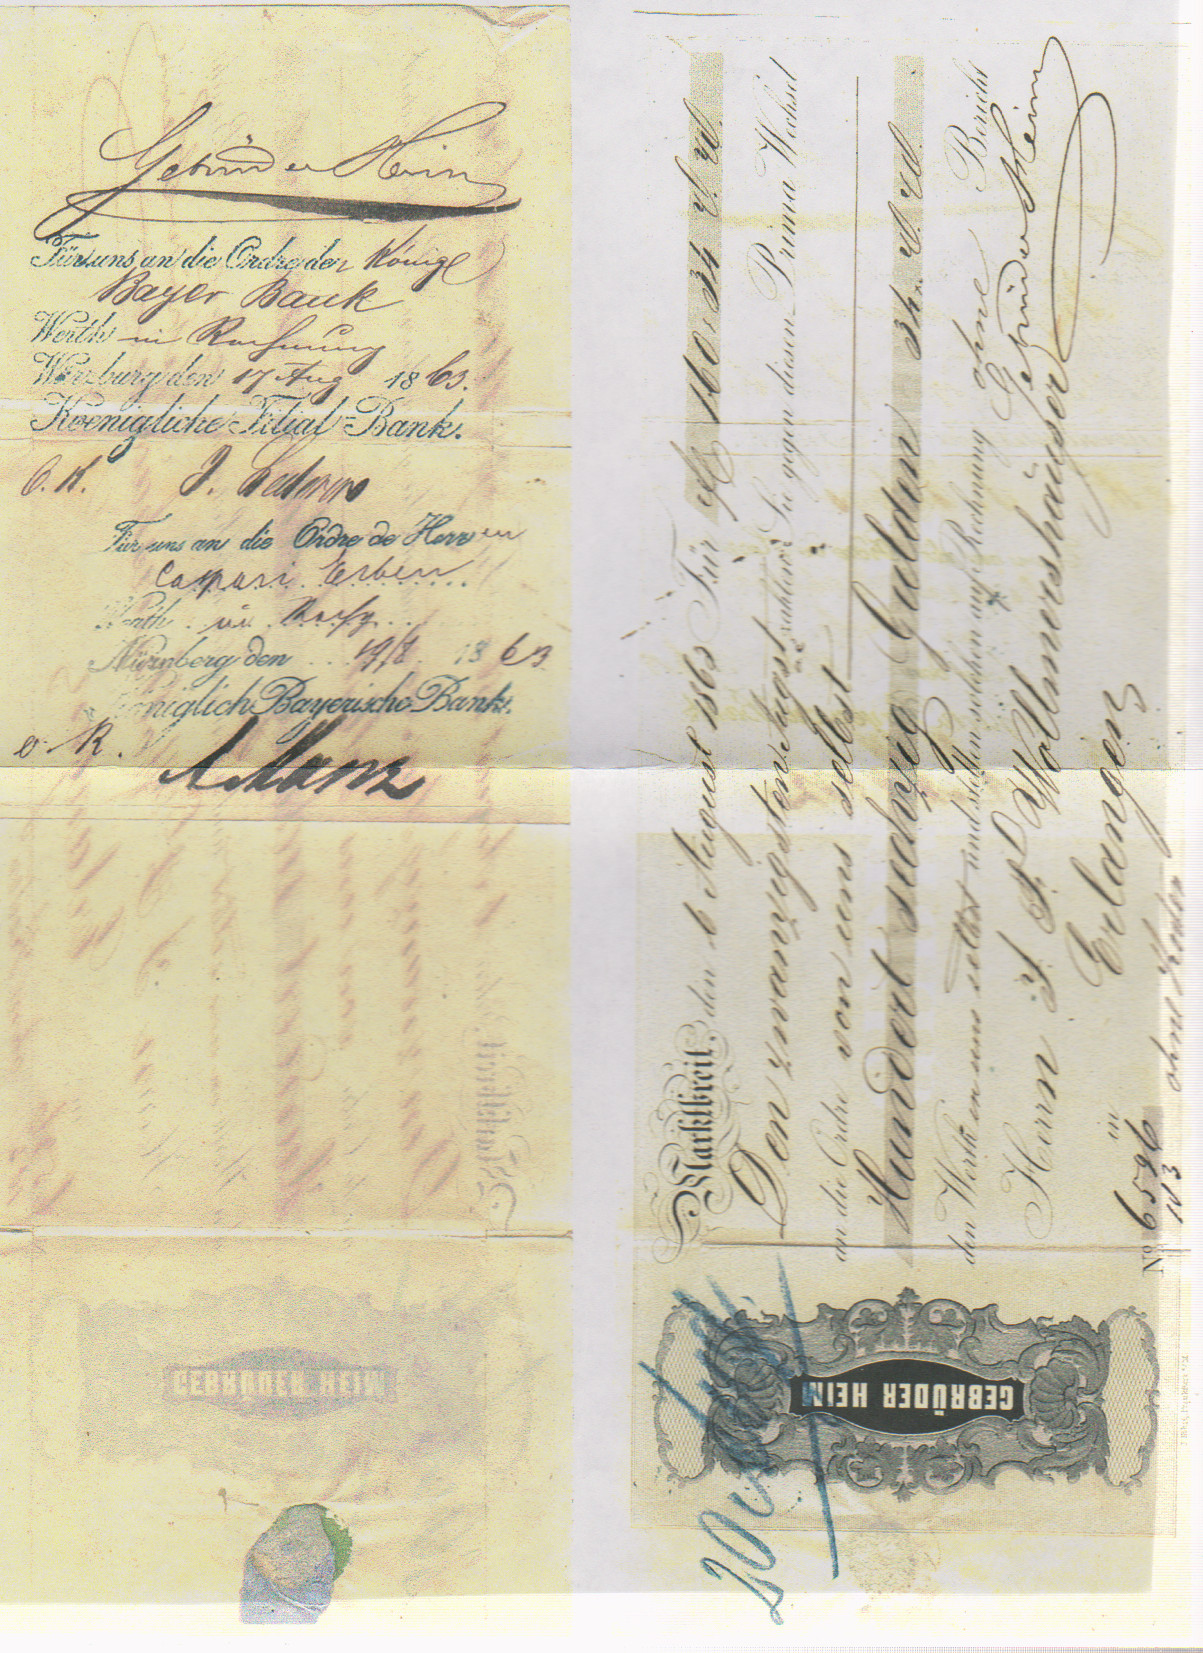 Gebrüder Heim
Für uns an die Ordre der Königl
Bayer Bank
Werth in Rechnung
Würzburg den 17 Aug 1863.
Koenigliche Filial-Bank.
J.
Für uns an die Ordre de Herren
Erben
Werth in Rechg
Nürnberg den 19/8 1863
Königlich Bayerische Bank.
GEBRÜDER HEIM
Marktbreit, den 6 August 1863 Für f 160.34 S.W.
Den zwanzigsten August zahlen Sie gegen diesen Prima Wechsel
an die Ordre von uns selbst
Hundert sechzig Gulden 34. S.W.
den Werth in uns selbst und stellen solchen auf Rechnung ohne Bericht
Herrn J. P. Wollmershäuser
Gebrüder Heim
in Erlangen
No 6596
103
ohne Kosten
GEBRÜDER HEIM